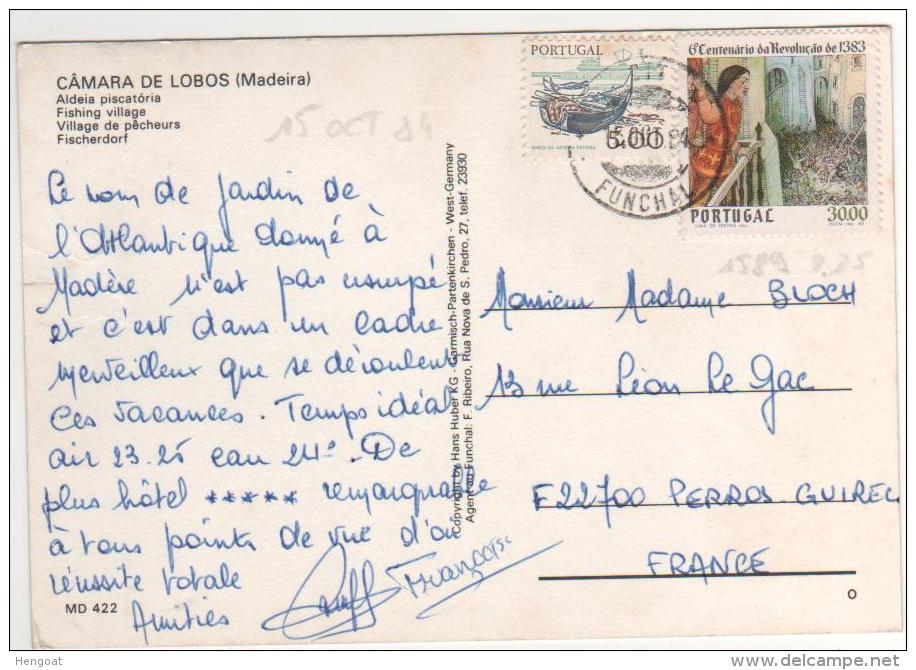 CÂMARA DE LOBOS (Madeira)
Aldeia piscatória
Fishing village
Village de pêcheurs
Fischerdorf
15 OCT 84
Le nom de jardin de
l'Atlantique donné à
Madère n'est pas usurpé
et c'est dans un cadre
merveilleux que se déroulent
ces vacances. Temps idéal
air 23.25 eau 24°. De
plus hôtel ***** remarquable
à tous points de vue d'où
réussite totale
Amitiés
Françoise
MD 422
Copyright by Hans Huber KG - Garmisch-Partenkirchen - West-Germany
Agent au Funchal: F. Ribeiro, Rua Nova de S. Pedro, 27, telef. 23930
PORTUGAL
5.00
FUNCHAL
6º Centenário da Revolução de 1383
PORTUGAL
30.00
1589
Monsieur Madame BLOCH
13 rue Léon Le Gac
F22700 PERROS GUIREC
FRANCE
O
Hengoat
www.delcampe.net